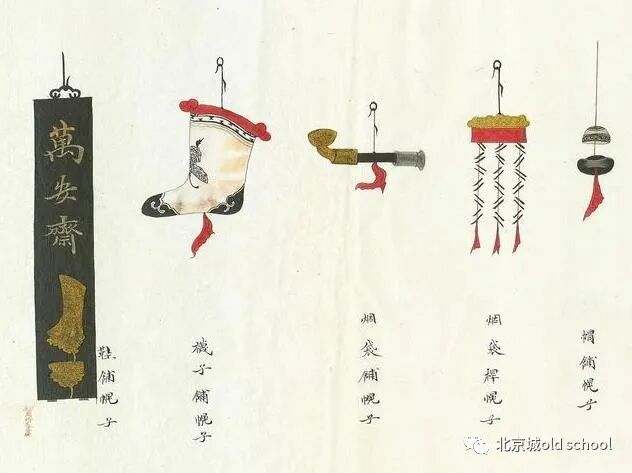 帽鋪幌子
烟袋桿幌子
烟袋鋪幌子
襪子鋪幌子
鞋鋪幌子
萬安齋
北京城old school